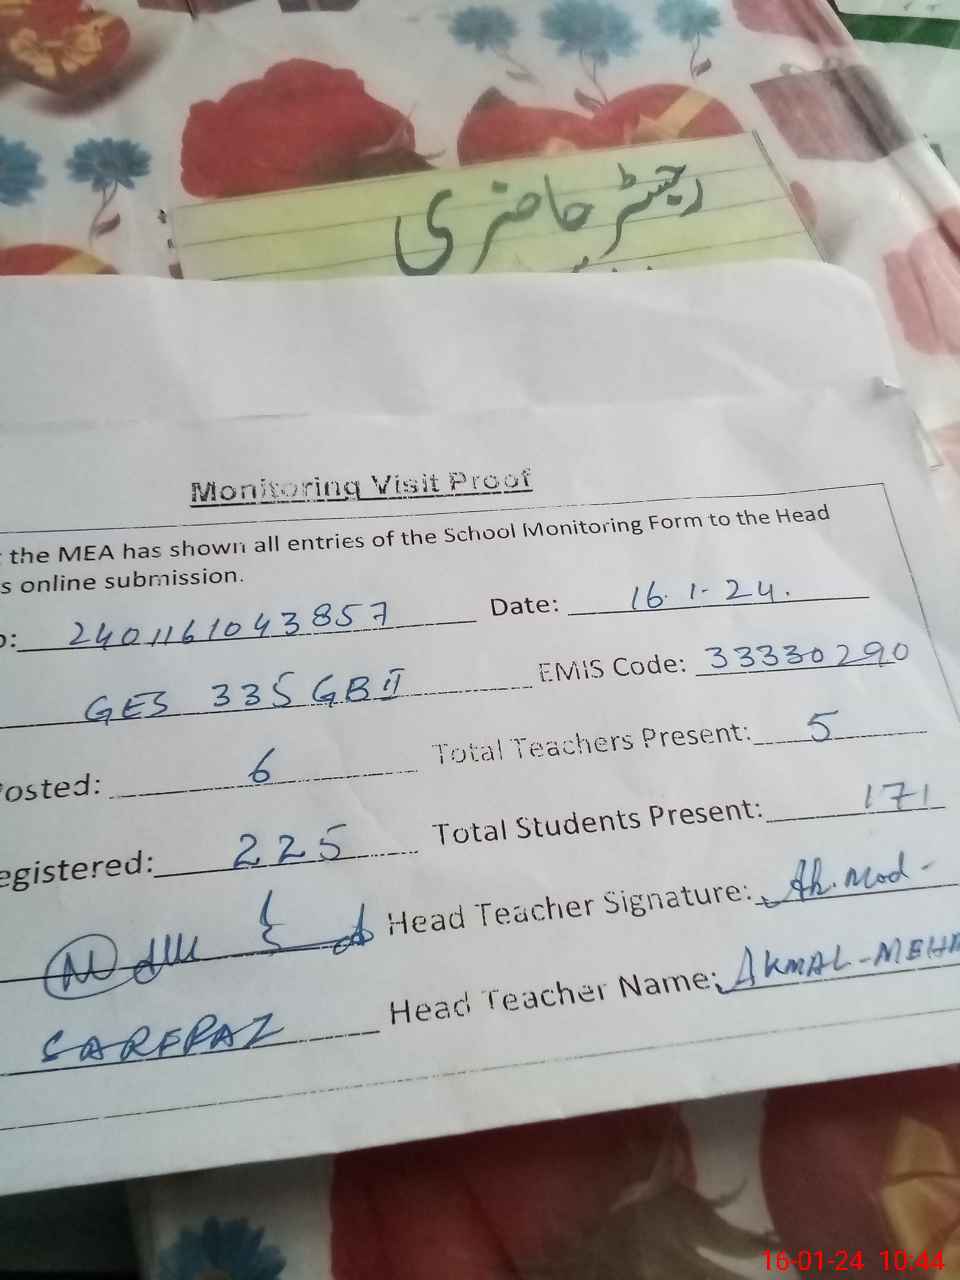 رجسٹر حاضری
Monitoring Visit Proof
the MEA has shown all entries of the School Monitoring Form to the Head
s online submission.
o: 2401161043857 Date: 16.1-24.
GES 335 GB II EMIS Code: 33330290
Posted: 6 Total Teachers Present: 5
egistered: 225 Total Students Present: 171
Head Teacher Signature:
SARFRAZ Head Teacher Name: AKMAL-MEHM
16-01-24 10:44